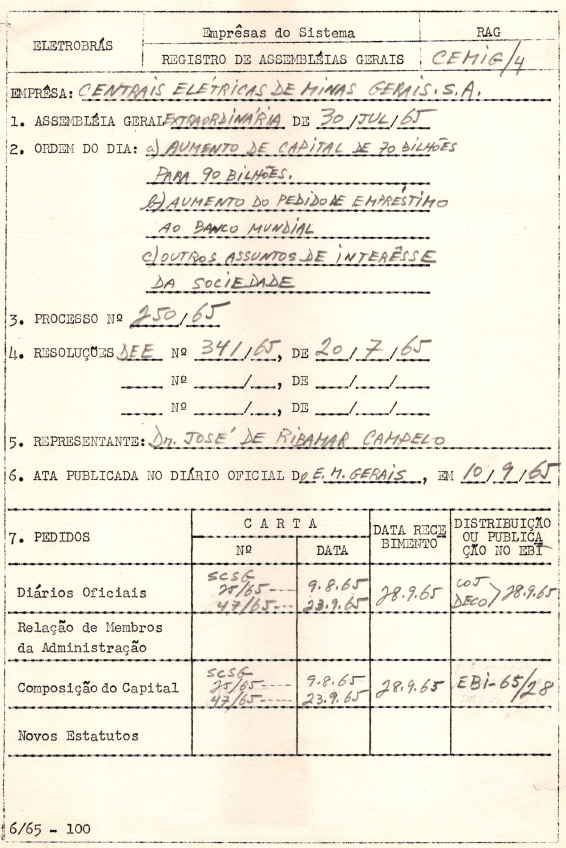 ELETROBRÁS
Emprêsas do Sistema
REGISTRO DE ASSEMBLÉIAS GERAIS
RAG
CEMIG/4
EMPRÊSA: CENTRAIS ELÉTRICAS DE MINAS GERAIS. S.A.
1. ASSEMBLÉIA GERAL EXTRAORDINÁRIA DE 30/JUL/65
2. ORDEM DO DIA: a) AUMENTO DE CAPITAL DE 70 BILHÕES
PARA 90 BILHÕES.
b) AUMENTO DO PEDIDO DE EMPRÉSTIMO
AO BANCO MUNDIAL
c) OUTROS ASSUNTOS DE INTERÊSSE
DA SOCIEDADE
3. PROCESSO Nº 250/65
4. RESOLUÇÕES DEE Nº 341/65, DE 20/7/65
Nº / , DE / /
Nº / , DE / /
5. REPRESENTANTE: Dr. JOSÉ DE RIBAMAR CAMPELO
6. ATA PUBLICADA NO DIÁRIO OFICIAL Do E. M. GERAIS, EM 10/9/65
7. PEDIDOS
CARTA
Nº
DATA
DATA RECE
BIMENTO
DISTRIBUIÇÃO
OU PUBLICA
ÇÃO NO EBI
Diários Oficiais
SCSG
25/65---- 9.8.65
47/65---- 23.9.65
28.9.65
COJ
DECO > 28.9.65
Relação de Membros
da Administração
Composição do Capital
SCSG
25/65---- 9.8.65
47/65---- 23.9.65
28.9.65
EBI-65/28
Novos Estatutos
6/65 - 100